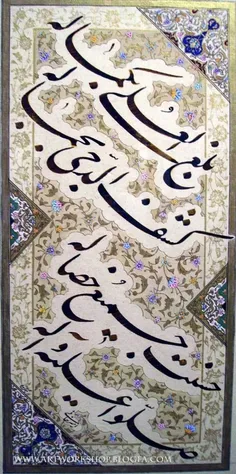 بلغ العلی بکماله
کشف الدجی بجماله
حسنت جمیع خصاله
صلوا علیه وآله
WWW.ARTWORKSHOP.BLOGFA.COM